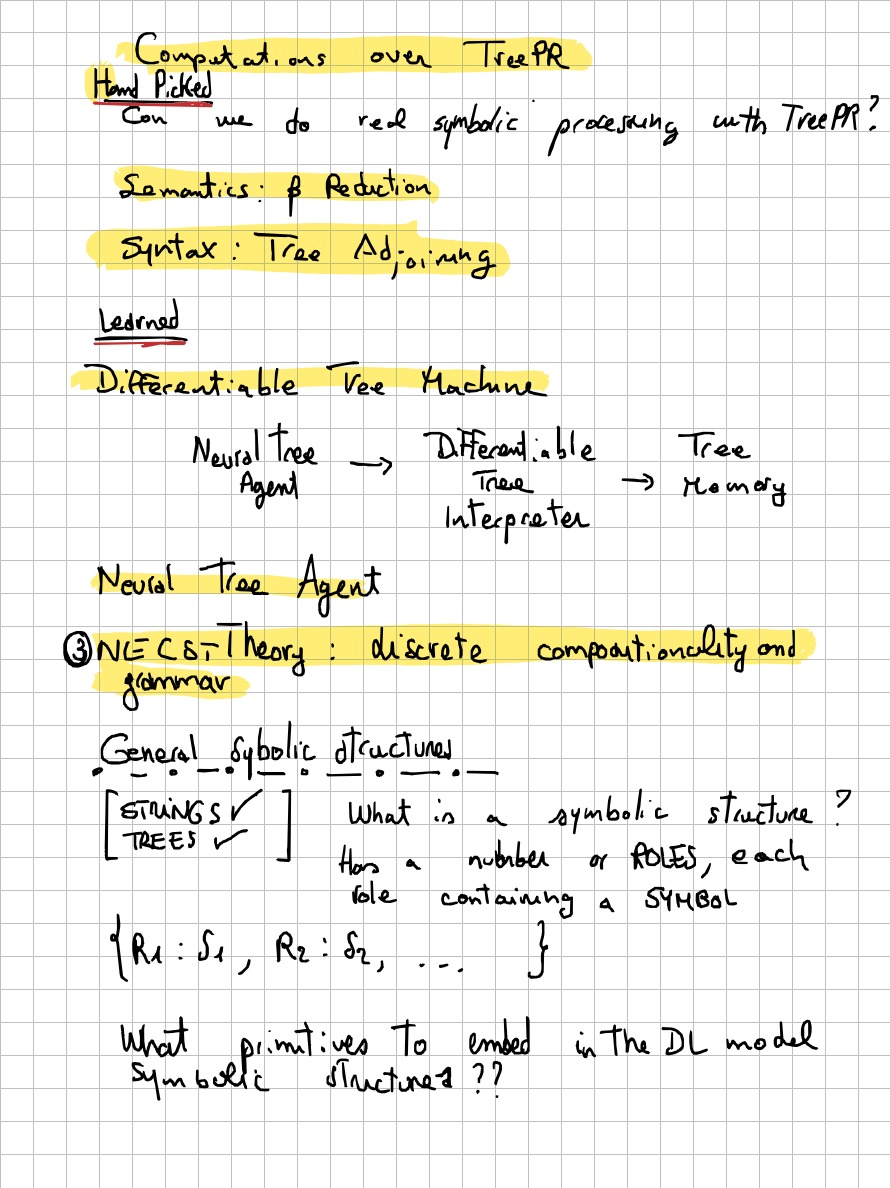 Computations over TreePR
Hand Picked
Can we do real symbolic processing with TreePR?
Semantics: β Reduction
Syntax: Tree Adjoining
Learned
Differentiable Tree Machine
Neural Tree Agent → Differentiable Tree Interpreter → Tree Memory
Neural Tree Agent
③ NECST Theory: discrete compositionality and
grammar
General Sybolic structures
[STRINGS ✓
TREES ✓]
What is a symbolic structure?
Has a number of ROLES, each
role containing a SYMBOL
{R1: S1, R2: S2, ... }
What primitives to embed in the DL model
symbolic structures??